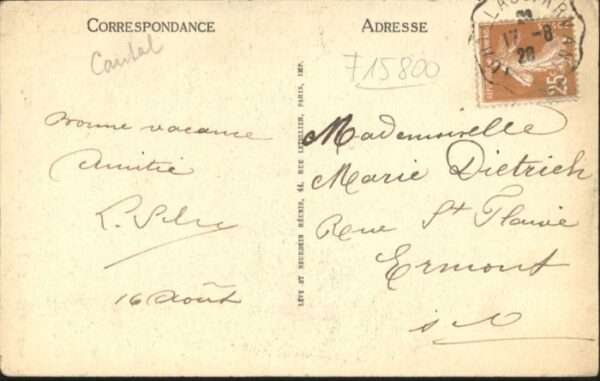 CORRESPONDANCE
Cantal
Bonne vacance
Amitié
16 Août
LÉVY ET NEURDEIN RÉUNIS, 44, RUE LETELLIER, PARIS, IMP.
ADRESSE
F15800
Mademoiselle
Marie Dietrich
Rue St Flaive
Ermont
S O
17 -8
28
25